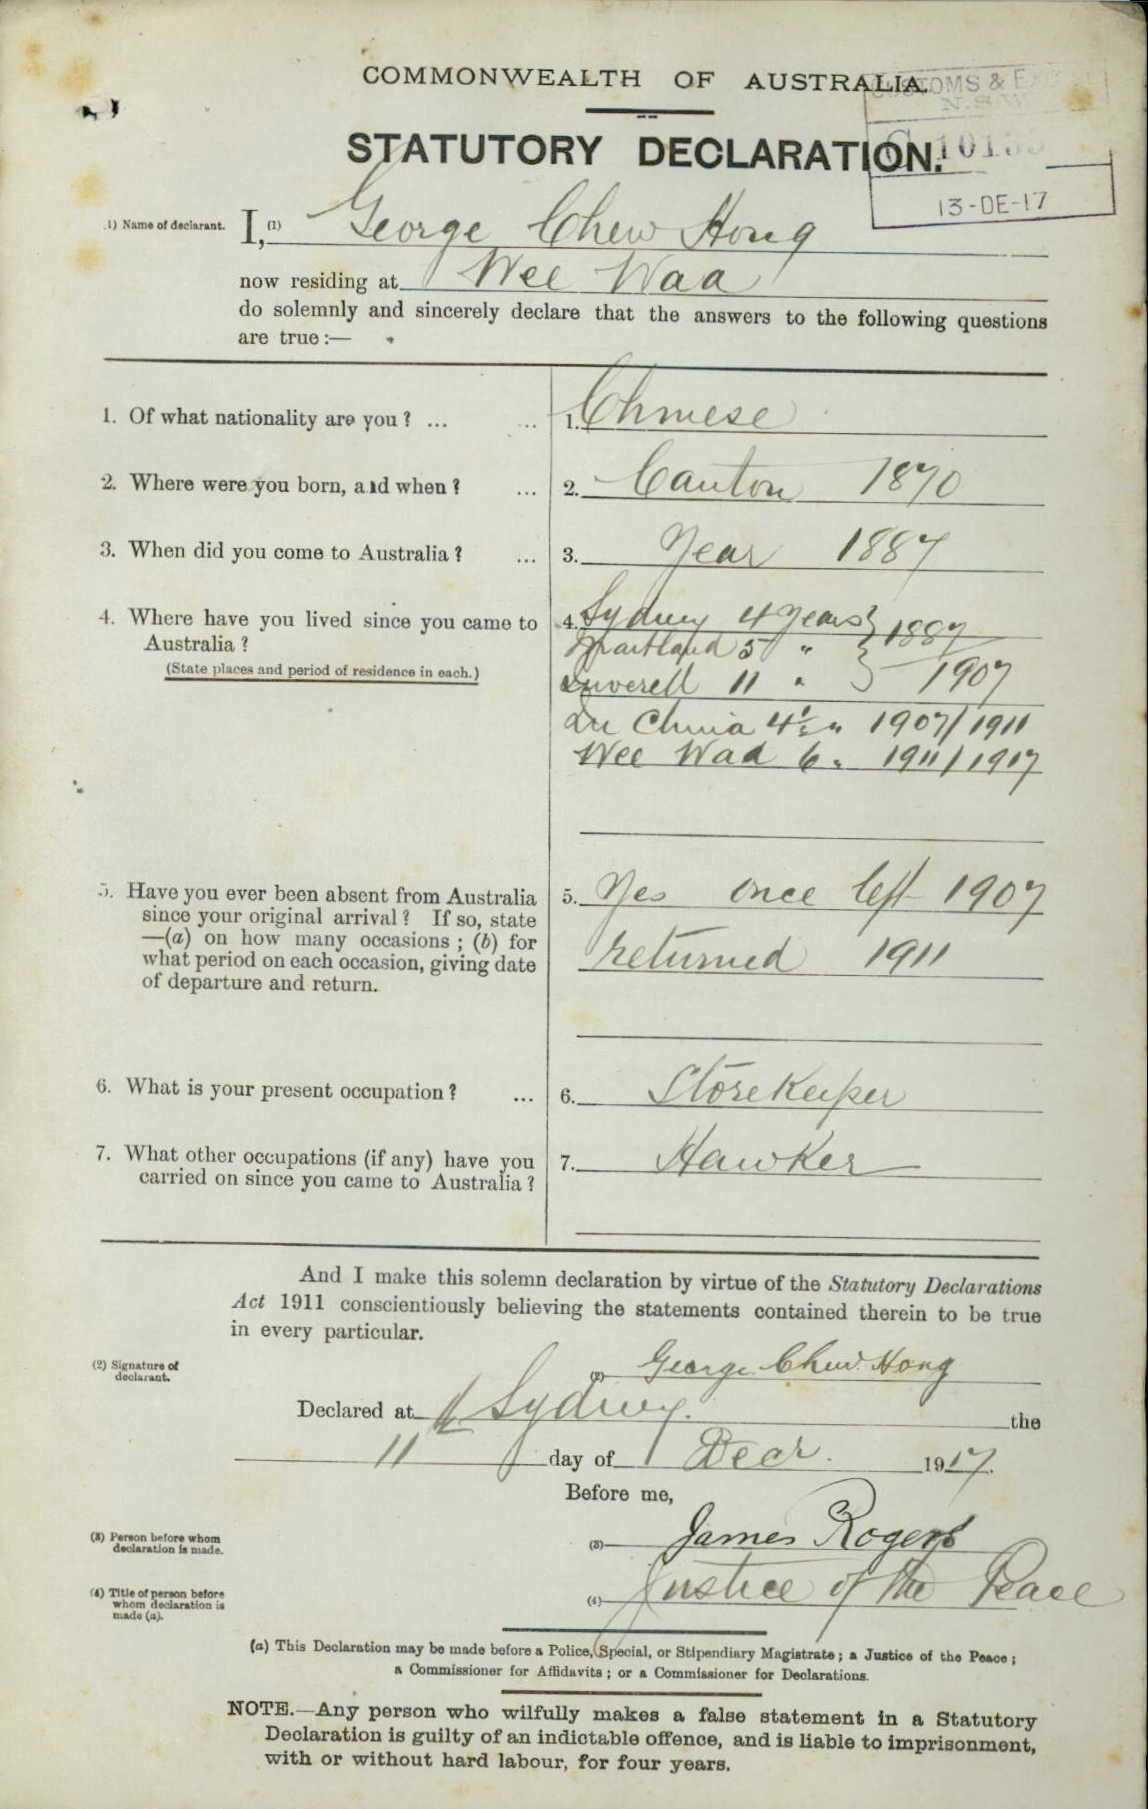 COMMONWEALTH OF AUSTRALIA.
CUSTOMS & EX
N.S.W.
STATUTORY DECLARATION.
C 1013
13-DE-17
1) Name of declarant. I, (1) George Chew Hong
now residing at Wee Waa
do solemnly and sincerely declare that the answers to the following questions
are true :—
1. Of what nationality are you ? ... ... 1. Chinese
2. Where were you born, and when ? ... 2. Canton 1870
3. When did you come to Australia ? ... 3. Year 1887
4. Where have you lived since you came to 4. Sydney 4 years } 1887
Australia ? Maitland 5 "
(State places and period of residence in each.) Inverell 11 " } 1907
In China 4½ " 1907/1911
Wee Waa 6 " 1911/1917
5. Have you ever been absent from Australia 5. Yes once left 1907
since your original arrival ? If so, state
—(a) on how many occasions ; (b) for returned 1911
what period on each occasion, giving date
of departure and return.
6. What is your present occupation ? ... 6. StoreKeeper
7. What other occupations (if any) have you 7. Hawker
carried on since you came to Australia ?
And I make this solemn declaration by virtue of the Statutory Declarations
Act 1911 conscientiously believing the statements contained therein to be true
in every particular.
(2) Signature of (2) George Chew Hong
declarant.
Declared at Sydney the
11 day of Decr. 1917.
Before me,
(3) Person before whom (3) James Rogers
declaration is made.
(4) Title of person before (4) Justice of the Peace
whom declaration is
made (a).
(a) This Declaration may be made before a Police, Special, or Stipendiary Magistrate ; a Justice of the Peace ;
a Commissioner for Affidavits ; or a Commissioner for Declarations.
NOTE.—Any person who wilfully makes a false statement in a Statutory
Declaration is guilty of an indictable offence, and is liable to imprisonment,
with or without hard labour, for four years.